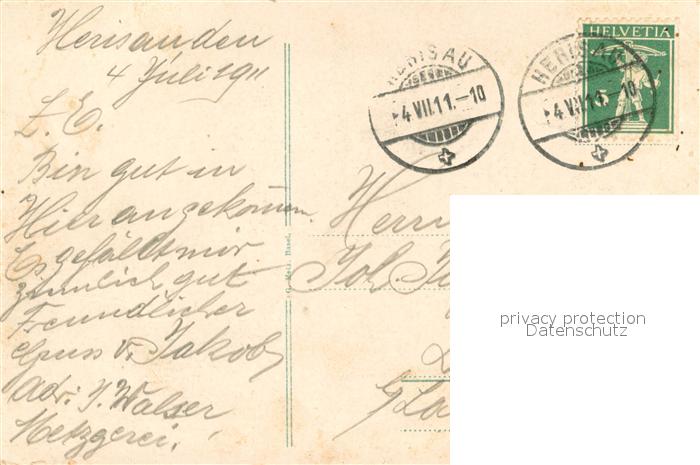 Herisau den
4 Juli 1911
L. E.
Bin gut in
Hier angekommen.
Es gefällt mir
zimmlich gut
Freundlicher
Gruss v. Jakob
Adr. J. Walser
Metzgerei.
HERISAU
4 VII.11.–10
HERISAU
4 VII.11.–10
HELVETIA
5
Herrn
Joh
privacy protection
Datenschutz